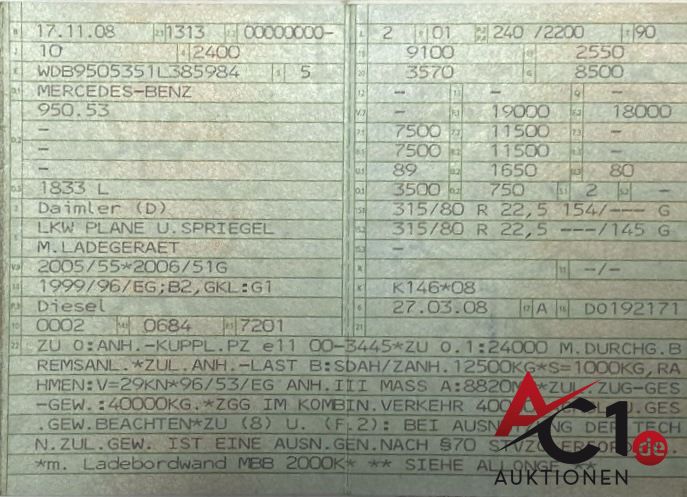 B 17.11.08 2.1 1313 2.2 00000000-
J 10 4 2400
E WDB9505351L385984 3 5
D.1 MERCEDES-BENZ
950.53
-
D.2 -
-
D.3 1833 L
2 Daimler (D)
5 LKW PLANE U.SPRIEGEL
M.LADEGERAET
V.9 2005/55*2006/51G
14 1999/96/EG;B2,GKL:G1
P.3 Diesel
10 0002 14.1 0684 P.1 7201
L 2 9 01 P.2 P.4 240 /2200 T 90
18 9100 19 2550
20 3570 G 8500
12 - 13 - Q -
V.7 - F.1 19000 F.2 18000
7.1 7500 7.2 11500 7.3 -
8.1 7500 8.2 11500 8.3 -
U.1 89 U.2 1650 U.3 80
O.1 3500 O.2 750 S.1 2 S.2 -
15.1 315/80 R 22,5 154/--- G
15.2 315/80 R 22,5 ---/145 G
15.3 -
R 11 -/-
K K146*08
6 27.03.08 17 A 16 DO192171
21
22 ZU O:ANH.-KUPPL.PZ e11 00-3445*ZU O.1:24000 M.DURCHG.B
REMSANL.*ZUL.ANH.-LAST B:SDAH/ZANH.12500KG*S=1000KG,RA
HMEN:V=29KN*96/53/EG ANH.III MASS A:8820MM*ZUL.ZUG-GES
-GEW.:40000KG.*ZGG IM KOMBIN.VERKEHR 440 U.GES
.GEW.BEACHTEN*ZU (8) U. (F.2): BEI AUSN NG DER TECH
N.ZUL.GEW. IST EINE AUSN.GEN.NACH §70 STVZO ERFORD
*m. Ladebordwand MBB 2000K* ** SIEHE ALLONGE **
AC1.de
AUKTIONEN